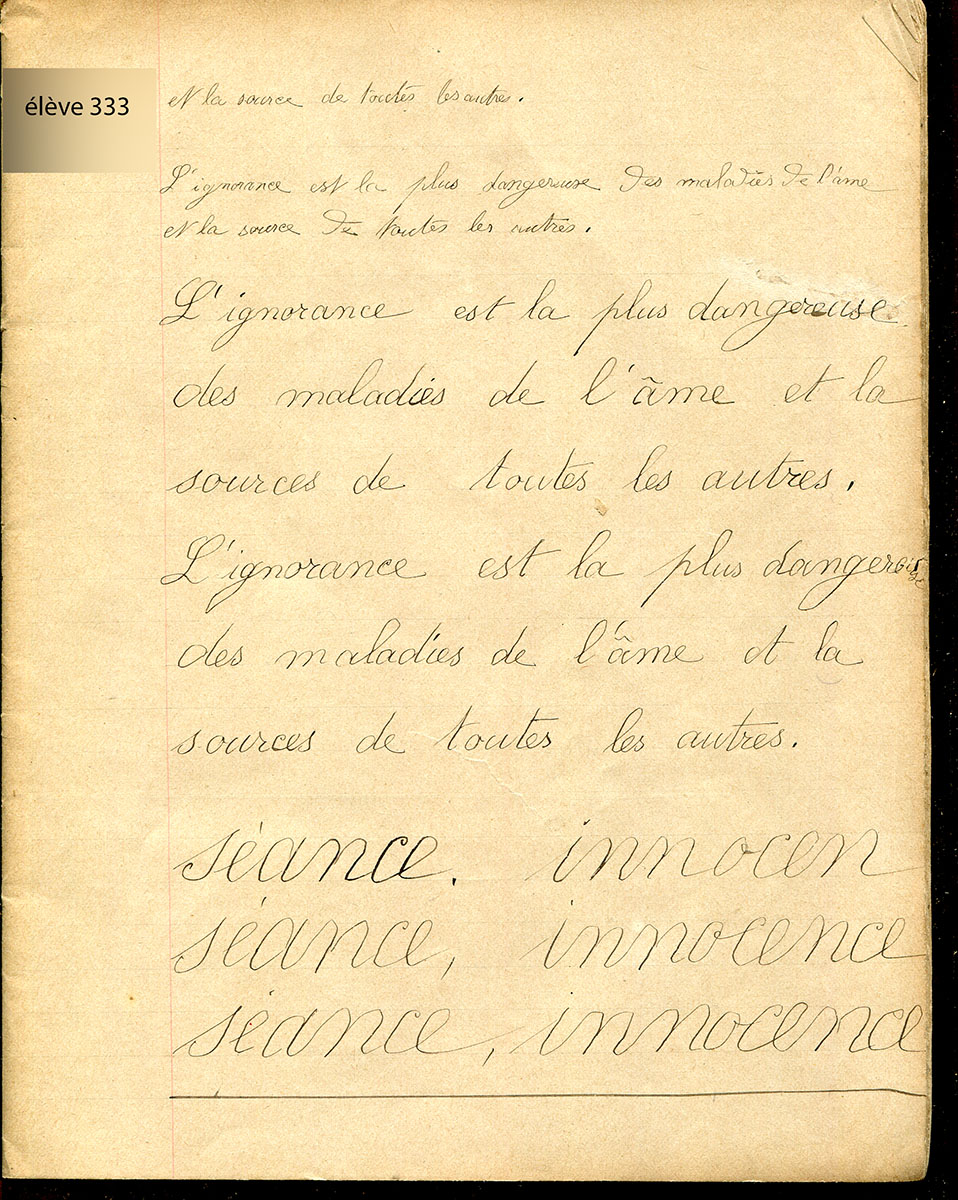 élève 333
et la source de toutes les autres.
L'ignorance est la plus dangereuse des maladies de l'âme
et la source de toutes les autres.
L'ignorance est la plus dangereuse
des maladies de l'âme et la
sources de toutes les autres.
L'ignorance est la plus dangereuse
des maladies de l'âme et la
sources de toutes les autres.
séance. innocen
séance, innocence
séance, innocence